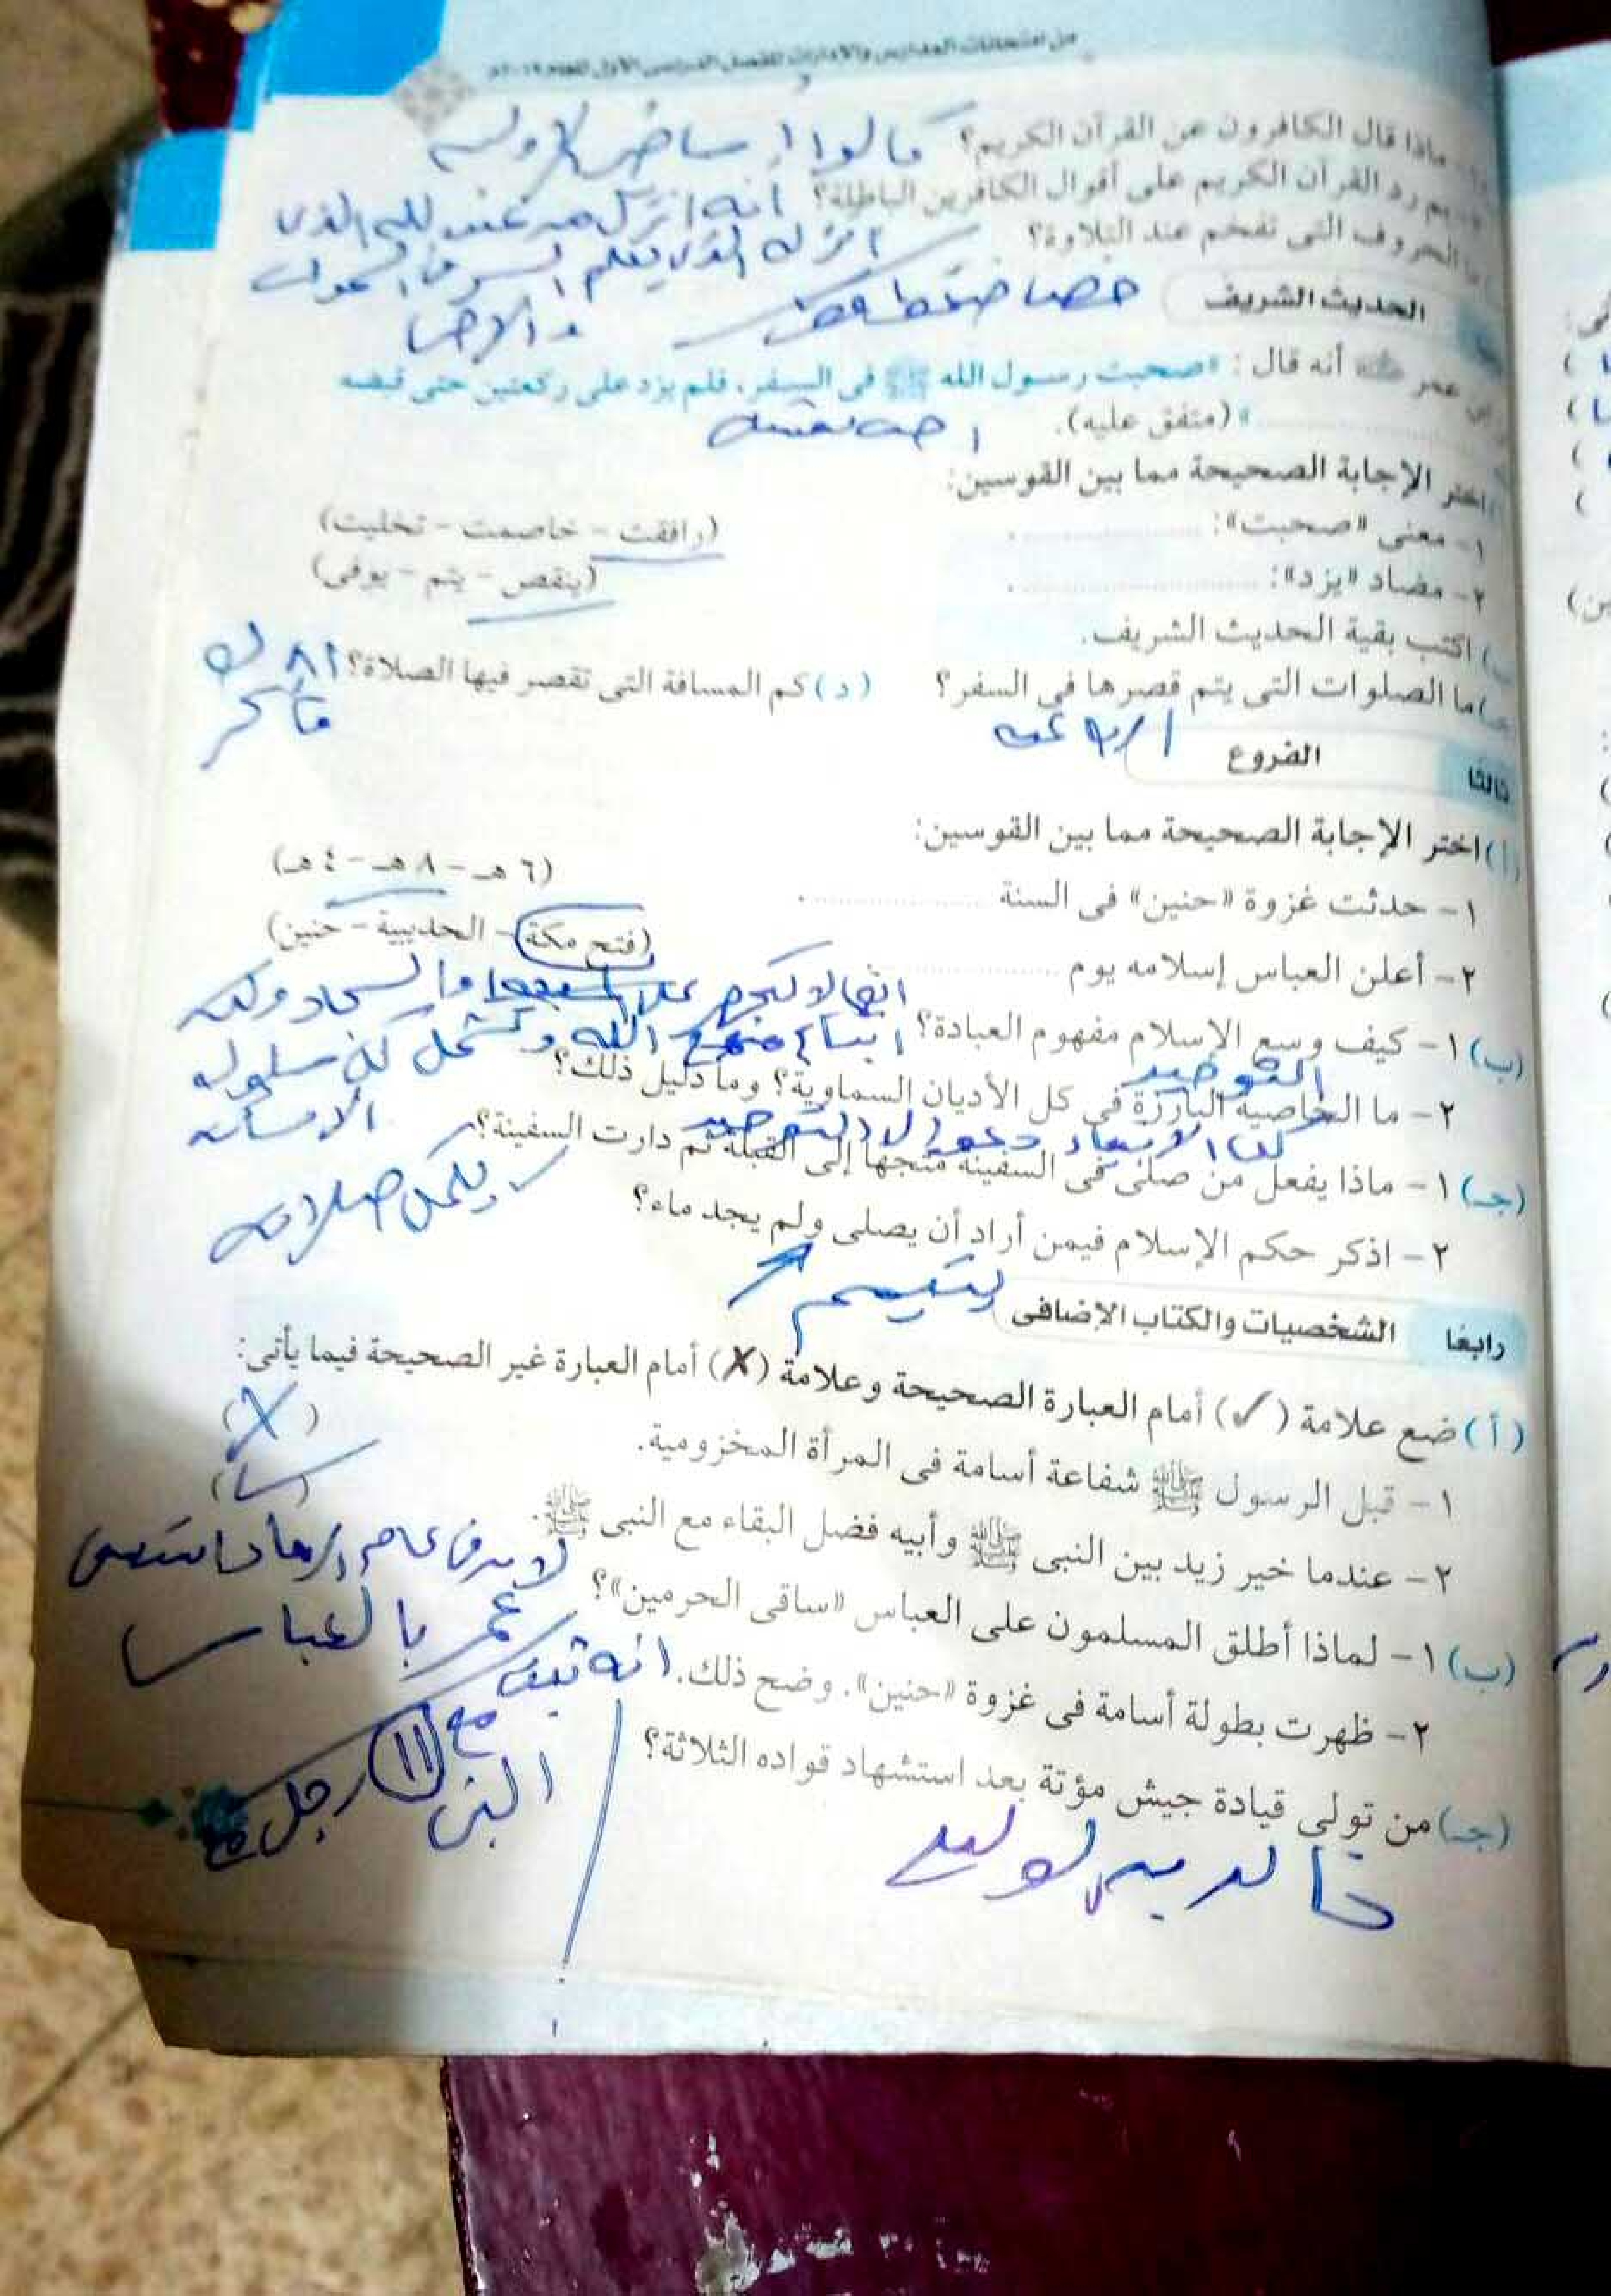 من امتحانات المدارس والإدارات للفصل الدراسى الأول للعام ٢٠١٩م
ماذا قال الكافرون عن القرآن الكريم؟ قالوا أساطير الأولين
بم رد القرآن الكريم على أقوال الكافرين الباطلة؟ أنه أنزل من عند الله الذى
ما الحروف التى تفخم عند التلاوة؟ أنزله الذى يعلم السر فى السموات
والأرض
الحديث الشريف خص ضغط قظ
عمر أنه قال: «صحبت رسول الله ﷺ فى السفر، فلم يزد على ركعتين حتى قبضه
» (متفق عليه).
اختر الإجابة الصحيحة مما بين القوسين:
١- معنى «صحبت»: (رافقت - خاصمت - تخليت)
٢- مضاد «يزد»: (ينقص - يتم - يوفى)
اكتب بقية الحديث الشريف.
ما الصلوات التى يتم قصرها فى السفر؟ (د) كم المسافة التى تقصر فيها الصلاة؟
ثالثا الفروع
(أ) اختر الإجابة الصحيحة مما بين القوسين:
١- حدثت غزوة «حنين» فى السنة (٦ هـ - ٨ هـ - ٤ هـ)
٢- أعلن العباس إسلامه يوم (فتح مكة - الحديبية - حنين)
(ب) ١- كيف وسع الإسلام مفهوم العبادة؟
اتباع منهج الله وتشمل كل سلوك
الإنسان
التوحيد
٢- ما الخاصية البارزة فى كل الأديان السماوية؟ وما دليل ذلك؟
كل الأنبياء دعوا إلى التوحيد
(جـ) ١- ماذا يفعل من صلى فى السفينة متجها إلى القبلة ثم دارت السفينة؟
يكمل صلاته
٢- اذكر حكم الإسلام فيمن أراد أن يصلى ولم يجد ماء؟
يتيمم
رابعًا الشخصيات والكتاب الإضافى
(أ) ضع علامة (✓) أمام العبارة الصحيحة وعلامة (✗) أمام العبارة غير الصحيحة فيما يأتى:
١- قبل الرسول ﷺ شفاعة أسامة فى المرأة المخزومية. (✗)
٢- عندما خير زيد بين النبى ﷺ وأبيه فضل البقاء مع النبى ﷺ. (✓)
(ب) ١- لماذا أطلق المسلمون على العباس «ساقى الحرمين»؟ فى عام الرمادة استسقى
عمر بالعباس
٢- ظهرت بطولة أسامة فى غزوة «حنين». وضح ذلك. انه ثبت
مع
النبى ١١ رجل
(جـ) من تولى قيادة جيش مؤتة بعد استشهاد قواده الثلاثة؟
خالد بن الوليد